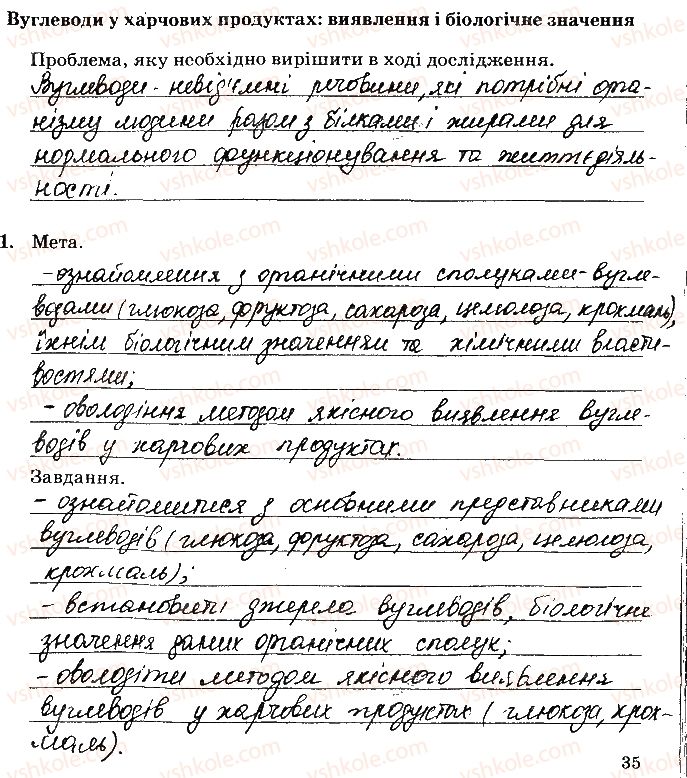 Вуглеводи у харчових продуктах: виявлення і біологічне значення
Проблема, яку необхідно вирішити в ході дослідження.
Вуглеводи - невід'ємні речовини, які потрібні орга-
нізму людини разом з білками і жирами для
нормального функціонування та життєдіяль-
ності.
1. Мета.
- ознайомлення з органічними сполуками - вугле-
водами (глюкоза, фруктоза, сахароза, целюлоза, крохмаль),
їхнім біологічним значенням та хімічними власти-
востями;
- оволодіння методом якісного виявлення вугле-
водів у харчових продуктах.
Завдання.
- ознайомитися з основними представниками
вуглеводів (глюкоза, фруктоза, сахароза, целюлоза,
крохмаль);
- встановити джерела вуглеводів, біологічне
значення даних органічних сполук;
- оволодіти методом якісного виявлення
вуглеводів у харчових продуктах (глюкоза, крох-
маль).
35